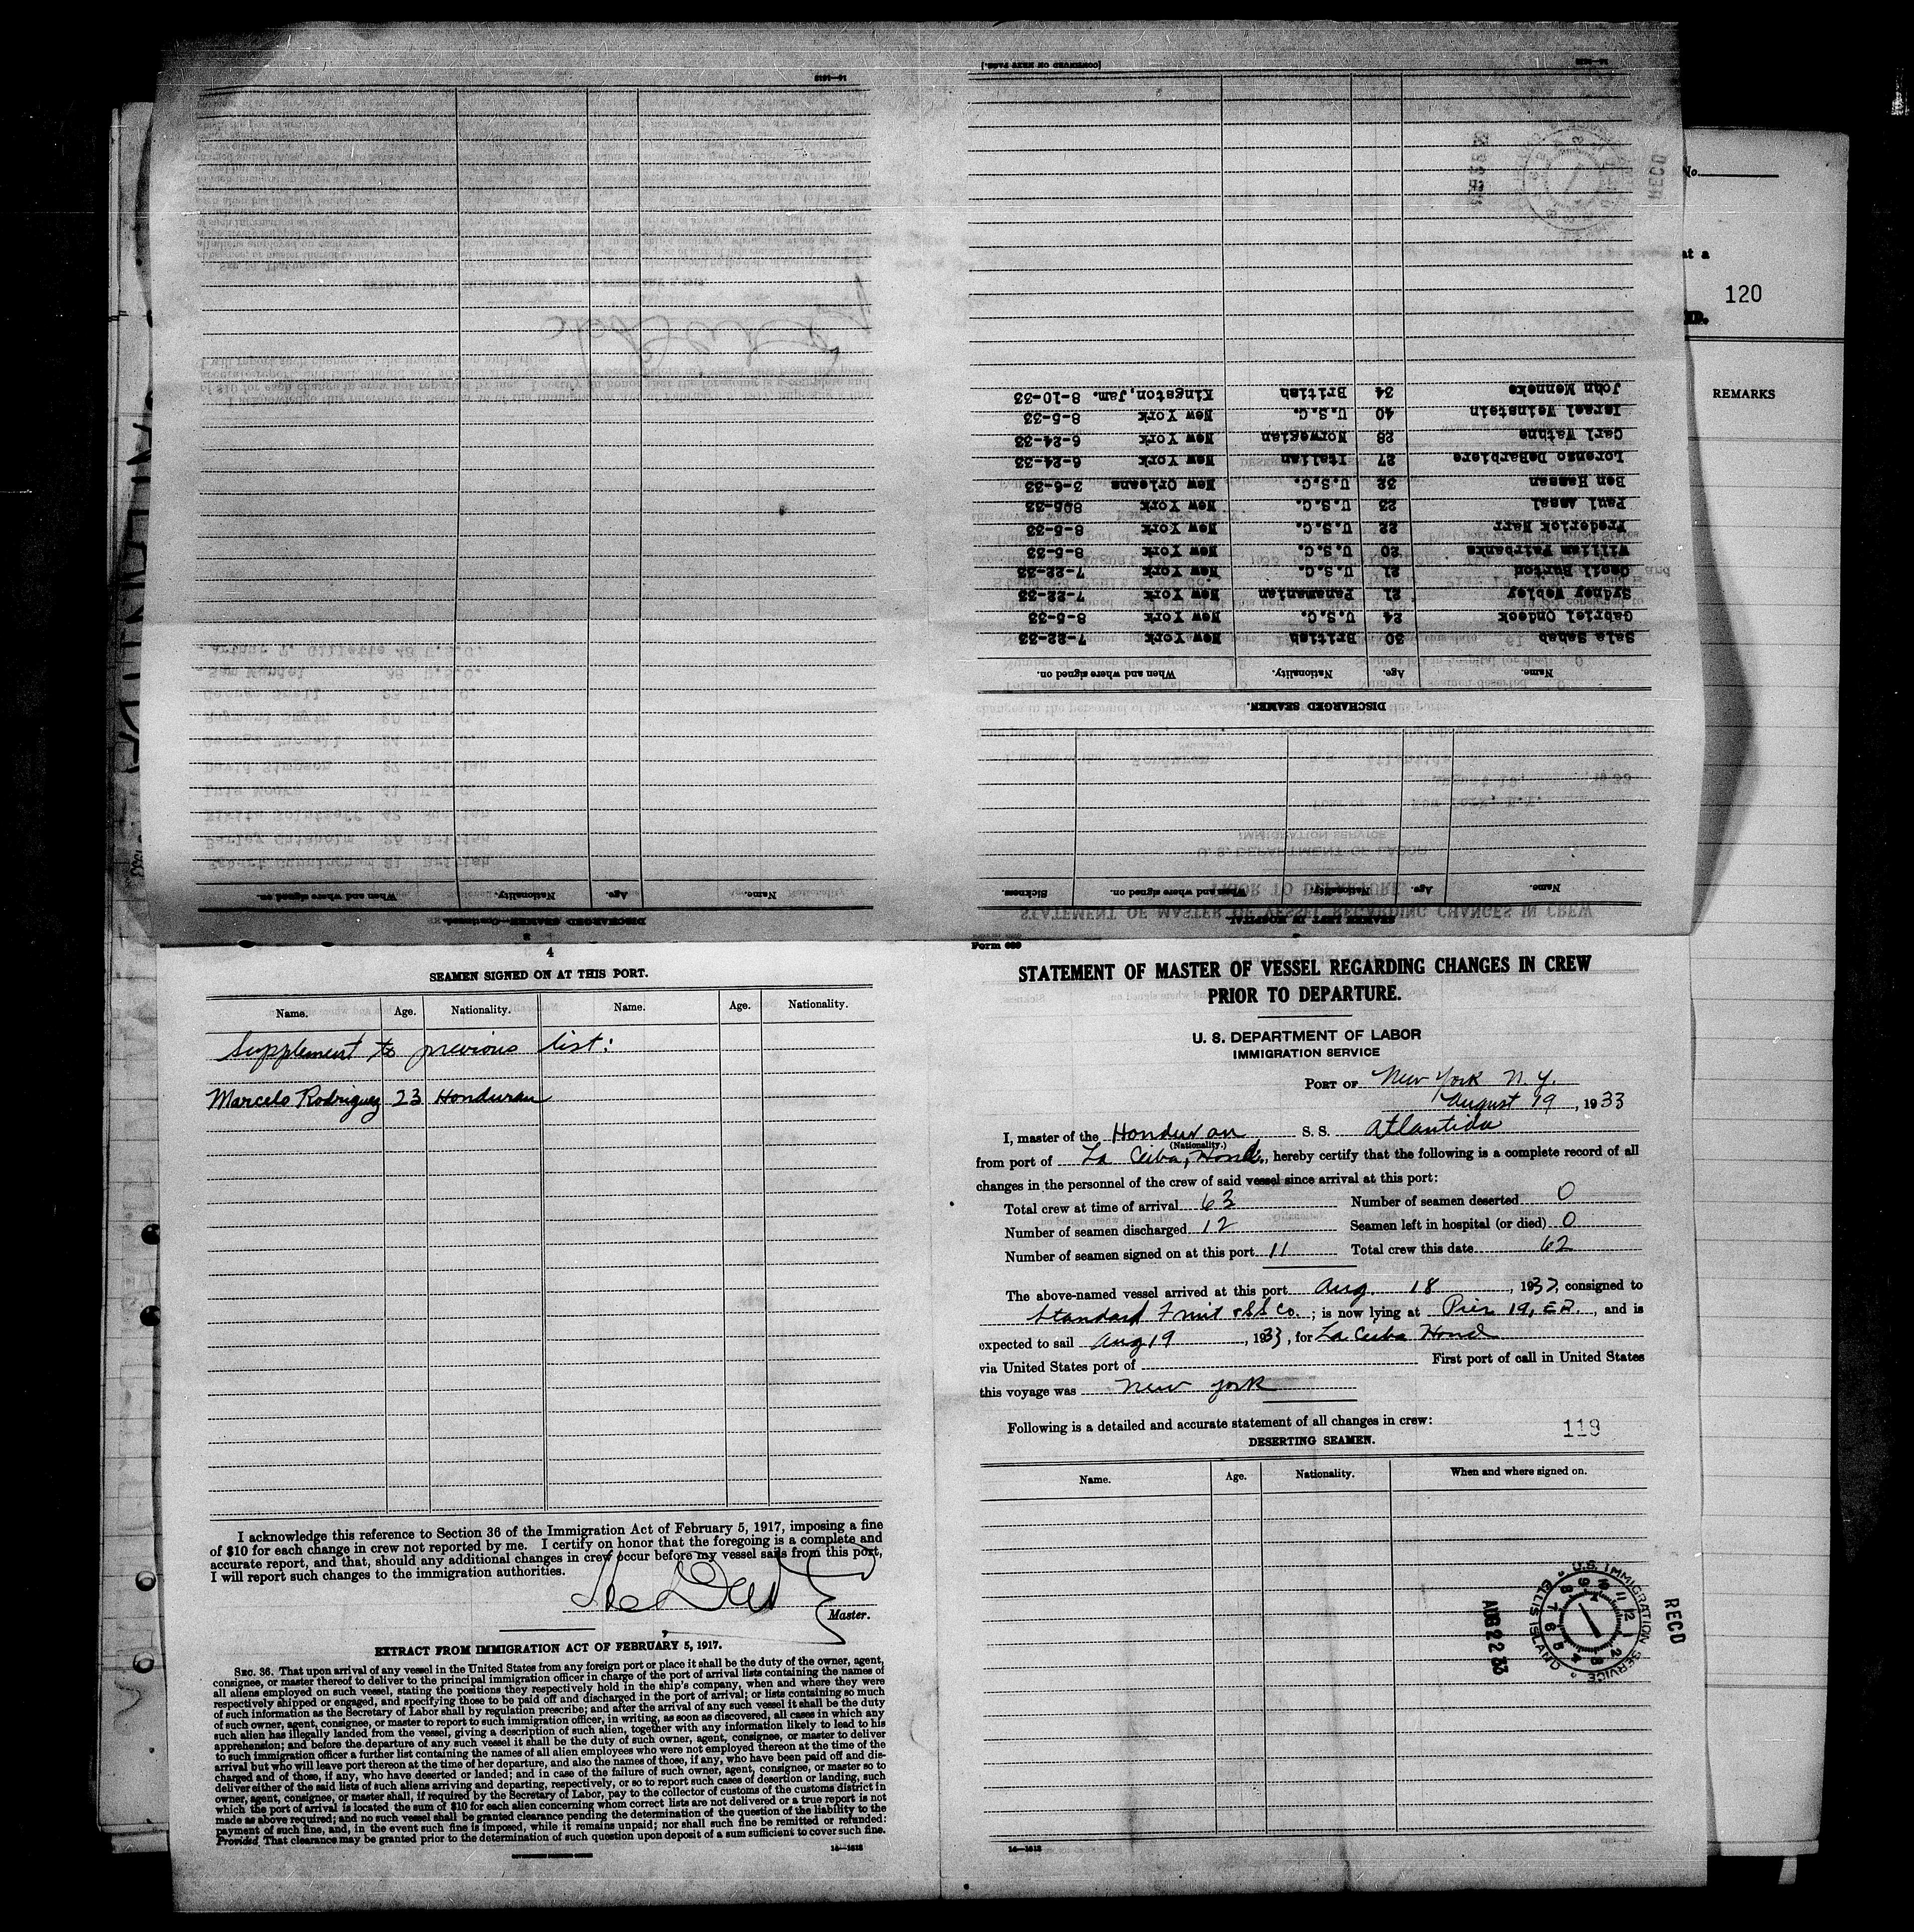 No.
at a
120
ED.
REMARKS
14—1618
[CONTINUED ON NEXT PAGE.]
John Menneke 34 British Kingston, Jam. 8-10-33
Israel Weinstein 40 U.S.C. New York 8-5-33
Carl Wathne 28 Norwegian New York 6-24-33
Lorenzo DeBarbiere 27 Italian New York 6-24-33
Ben Hassan 32 U.S.C. New Orleans 3-6-33
Paul Assal 23 U.S.C. New York 8-5-33
Frederick Marr 22 U.S.C. New York 8-5-33
William Fairbanks 20 U.S.C. New York 8-5-33
Cecil Burton 21 U.S.C. New York 7-22-33
Sydney Webley 21 Panamanian New York 7-22-33
Gabriel Ondeck 24 U.S.C. New York 8-5-33
Sale Saheb 30 British New York 7-22-33
Name. Age. Nationality. When and where signed on.
DISCHARGED SEAMEN.
Name. Age. Nationality. When and where signed on. Sickness.
SEAMEN LEFT IN HOSPITAL.
Name. Age. Nationality. When and where signed on.
DISCHARGED SEAMEN—Continued.
3
4
SEAMEN SIGNED ON AT THIS PORT.
Name. Age. Nationality. Name. Age. Nationality.
Supplement to previous list:
Marcelo Rodriguez 23 Honduran
I acknowledge this reference to Section 36 of the Immigration Act of February 5, 1917, imposing a fine
of $10 for each change in crew not reported by me. I certify on honor that the foregoing is a complete and
accurate report, and that, should any additional changes in crew occur before my vessel sails from this port,
I will report such changes to the immigration authorities.
Master.
EXTRACT FROM IMMIGRATION ACT OF FEBRUARY 5, 1917.
SEC. 36. That upon arrival of any vessel in the United States from any foreign port or place it shall be the duty of the owner, agent,
consignee, or master thereof to deliver to the principal immigration officer in charge of the port of arrival lists containing the names of
all aliens employed on such vessel, stating the positions they respectively hold in the ship's company, when and where they were
respectively shipped or engaged, and specifying those to be paid off and discharged in the port of arrival; or lists containing so much
of such information as the Secretary of Labor shall by regulation prescribe; and after the arrival of any such vessel it shall be the duty
of such owner, agent, consignee, or master to report to such immigration officer, in writing, as soon as discovered, all cases in which any
such alien has illegally landed from the vessel, giving a description of such alien, together with any information likely to lead to his
apprehension; and before the departure of any such vessel it shall be the duty of such owner, agent, consignee, or master to deliver
to such immigration officer a further list containing the names of all alien employees who were not employed thereon at the time of the
arrival but who will leave port thereon at the time of her departure, and also the names of those, if any, who have been paid off and dis-
charged and of those, if any, who have deserted or landed; and in case of the failure of such owner, agent, consignee, or master so to
deliver either of the said lists of such aliens arriving and departing, respectively, or so to report such cases of desertion or landing, such
owner, agent, consignee, or master shall, if required by the Secretary of Labor, pay to the collector of customs of the customs district in
which the port of arrival is located the sum of $10 for each alien concerning whom correct lists are not delivered or a true report is not
made as above required; and no such vessel shall be granted clearance pending the determination of the question of the liability to the
payment of such fine, and, in the event such fine is imposed, while it remains unpaid; nor shall such fine be remitted or refunded:
Provided That clearance may be granted prior to the determination of such question upon deposit of a sum sufficient to cover such fine.
14—1618
Form 689
STATEMENT OF MASTER OF VESSEL REGARDING CHANGES IN CREW
PRIOR TO DEPARTURE.
U. S. DEPARTMENT OF LABOR
IMMIGRATION SERVICE
PORT OF New York N. Y.
August 19, 1933
I, master of the Honduran S. S. Atlantida
(Nationality.)
from port of La Ceiba, Hond., hereby certify that the following is a complete record of all
changes in the personnel of the crew of said vessel since arrival at this port:
Total crew at time of arrival 63 Number of seamen deserted 0
Number of seamen discharged 12 Seamen left in hospital (or died) 0
Number of seamen signed on at this port 11 Total crew this date 62
The above-named vessel arrived at this port Aug. 18, 1933, consigned to
Standard Fruit & SS Co.; is now lying at Pier 19, E.R., and is
expected to sail Aug 19, 1933, for La Ceiba Hond
via United States port of First port of call in United States
this voyage was New York
Following is a detailed and accurate statement of all changes in crew:
119
DESERTING SEAMEN.
Name. Age. Nationality. When and where signed on.
U.S. IMMIGRATION SERVICE ELLIS ISLAND
RECD
AUG 22 33
14—1618